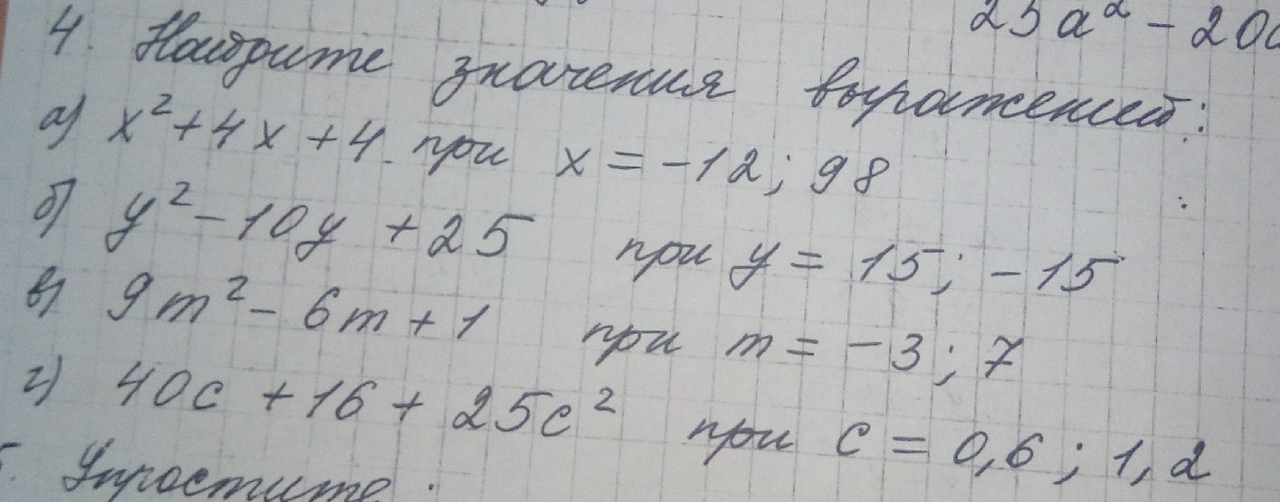 25a² - 20
4. Найдите значения выражений:
а) x² + 4x + 4 при x = -12; 98
б) y² - 10y + 25 при y = 15; -15
в) 9m² - 6m + 1 при m = -3; 7
г) 40c + 16 + 25c² при c = 0,6; 1,2
5. Упростите: